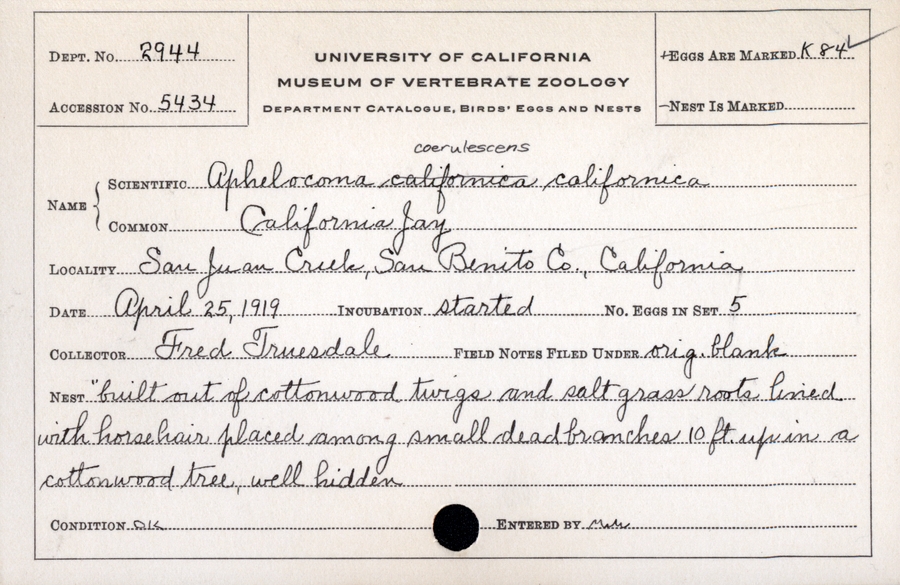 DEPT. No. 2944
ACCESSION No. 5434
UNIVERSITY OF CALIFORNIA
MUSEUM OF VERTEBRATE ZOOLOGY
DEPARTMENT CATALOGUE, BIRDS' EGGS AND NESTS
+EGGS ARE MARKED K 84 ✓
–NEST IS MARKED
coerulescens
NAME { SCIENTIFIC Aphelocoma californica californica
COMMON California Jay
LOCALITY San Juan Creek, San Benito Co., California
DATE April 25, 1919 INCUBATION started No. EGGS IN SET 5
COLLECTOR Fred Truesdale FIELD NOTES FILED UNDER orig. blank
NEST "built out of cottonwood twigs and salt grass roots lined
with horsehair placed among small dead branches 10 ft. up in a
cottonwood tree, well hidden
CONDITION OK ENTERED BY